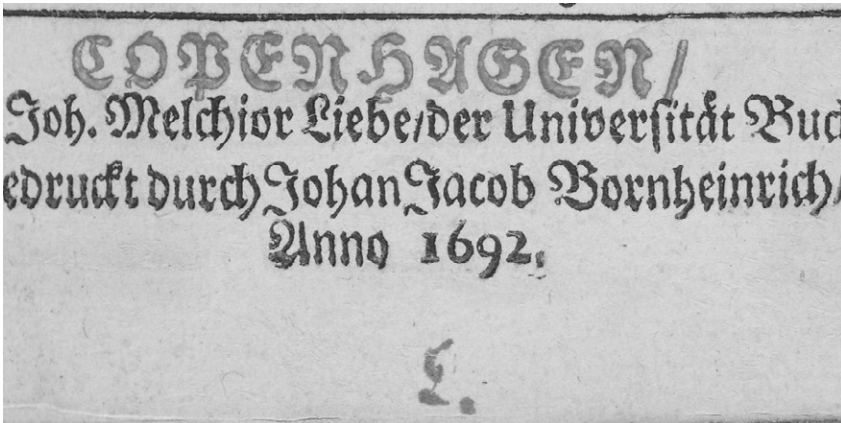 COPENHAGEN/
Joh. Melchior Liebe/der Universität Buc
edruckt durch Johan Jacob Bornheinrich/
Anno 1692.
L.